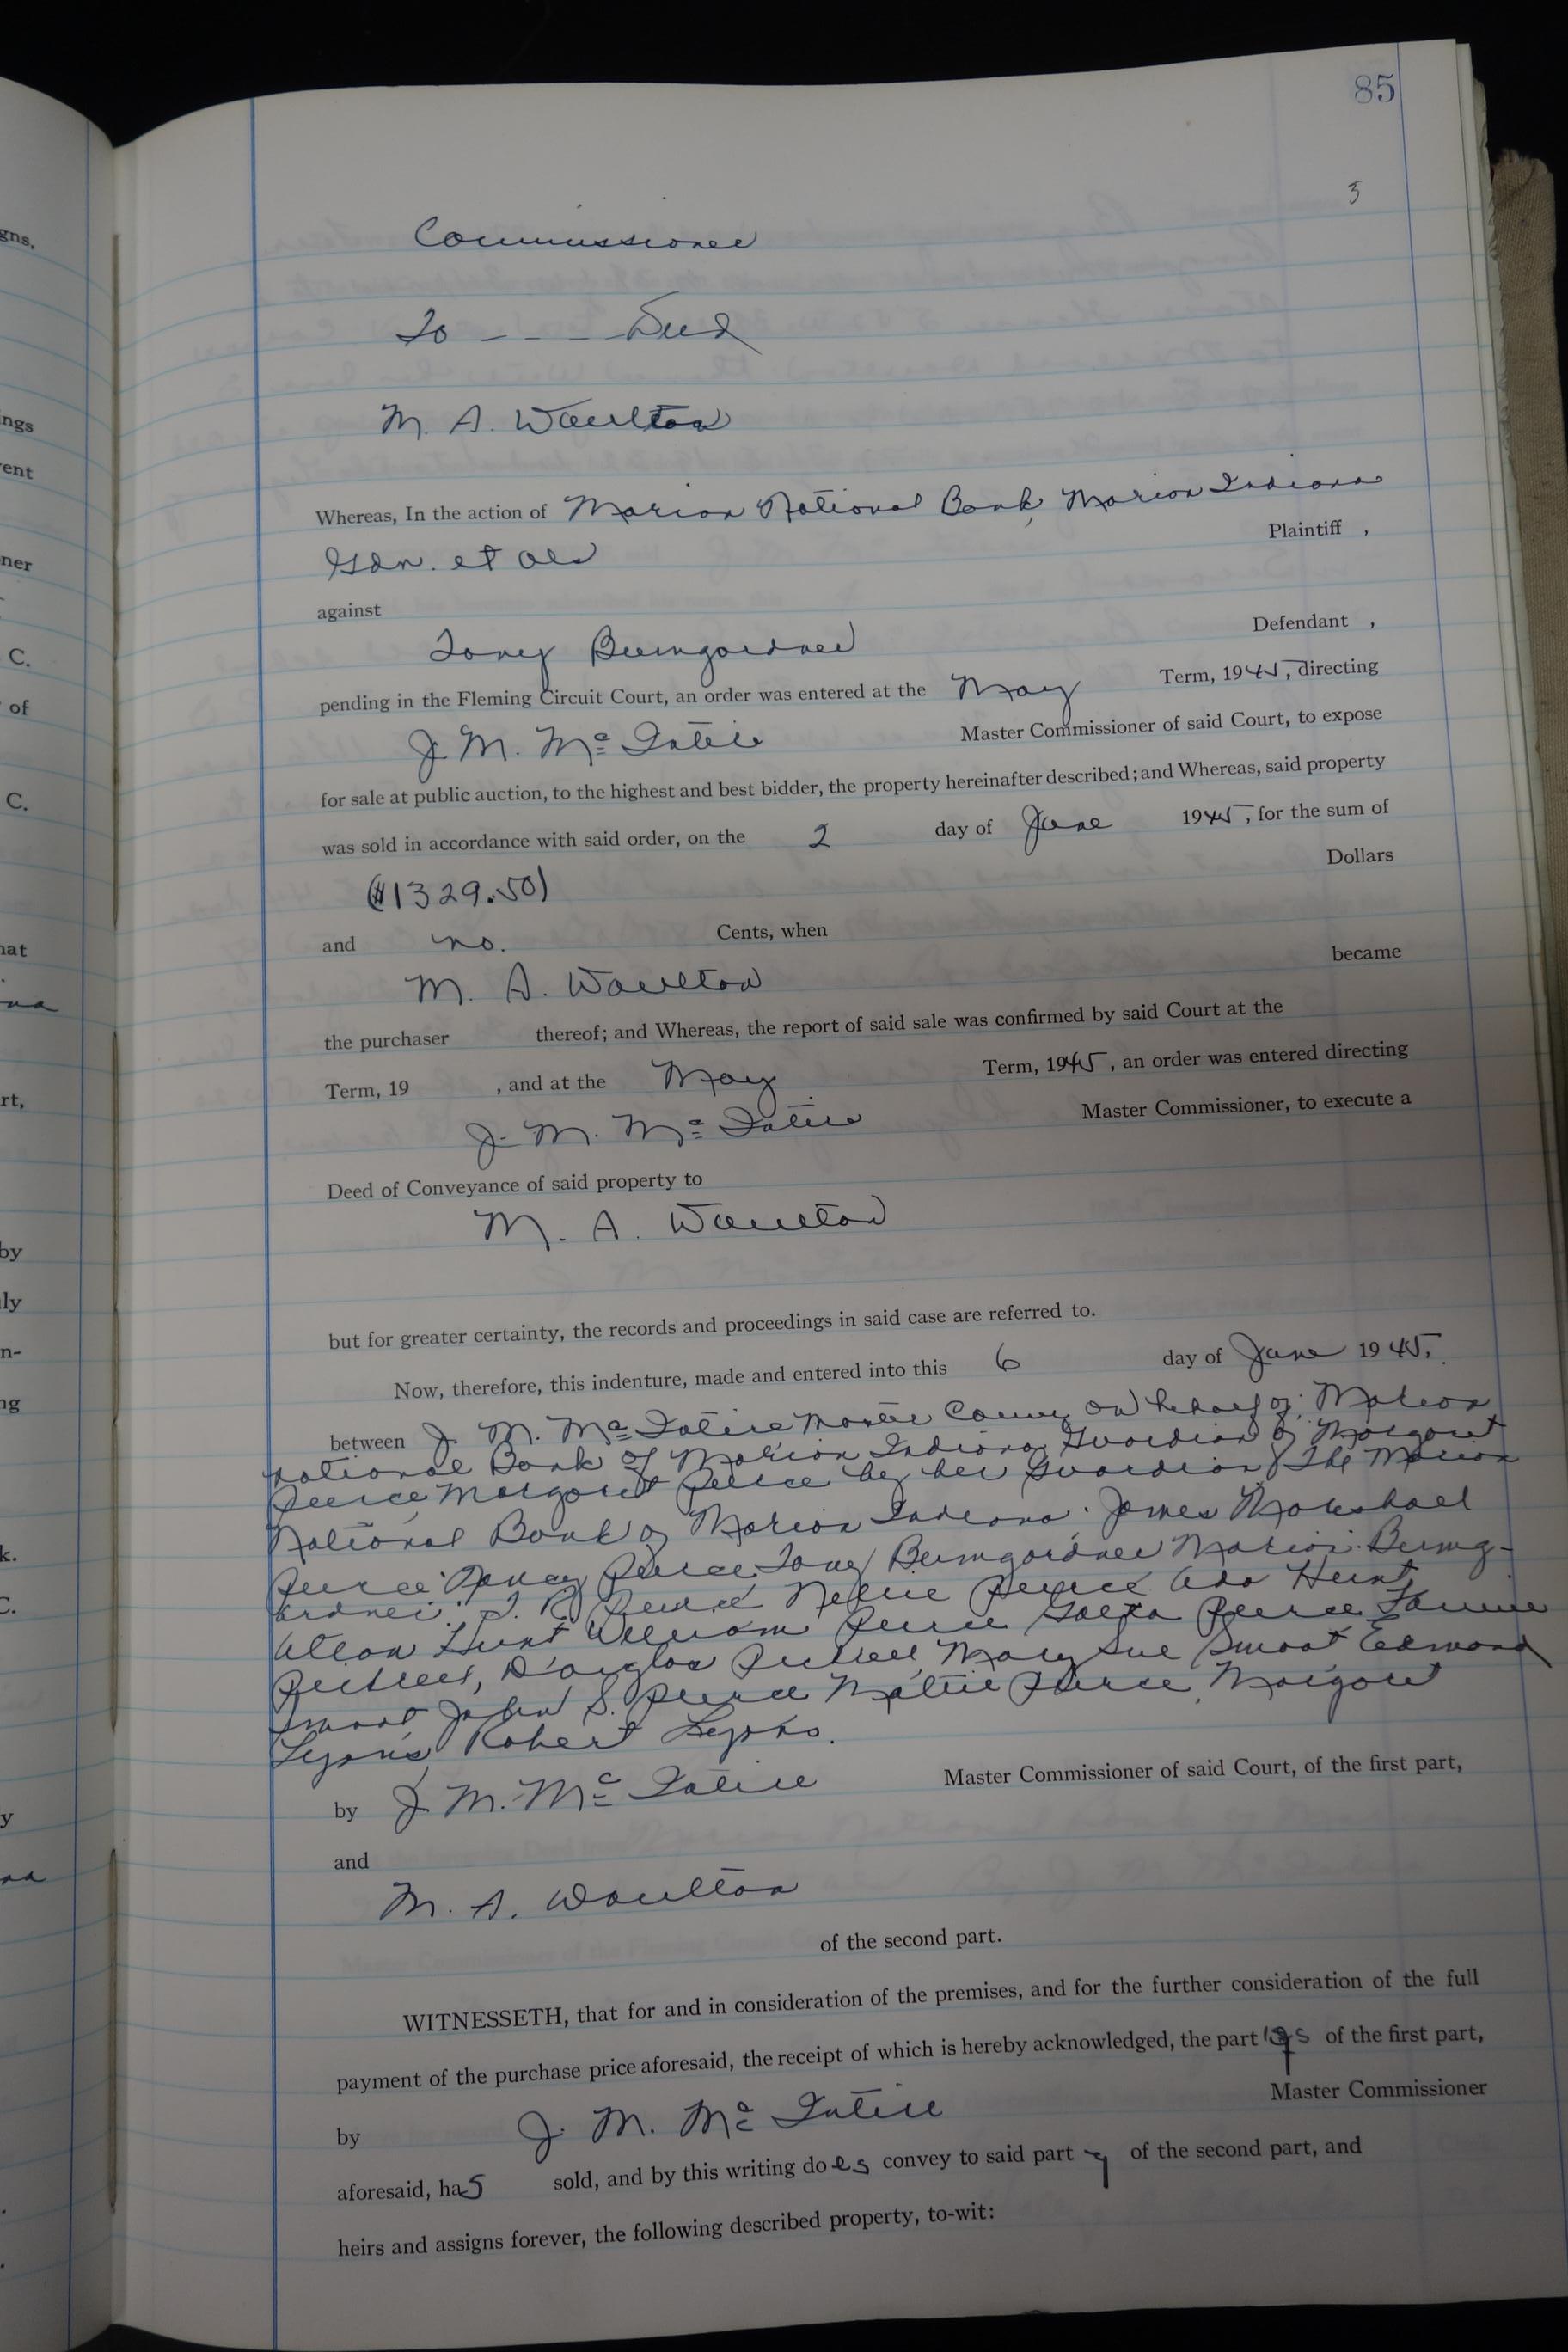 85
3
Commissioner
To - - - - Deed
M. A. Woulton
Whereas, In the action of Marion National Bank, Marion Indiana
Gdn. et als Plaintiff ,
against
Toney Bumgardner Defendant ,
pending in the Fleming Circuit Court, an order was entered at the May Term, 1945, directing
J. M. Mc Intire Master Commissioner of said Court, to expose
for sale at public auction, to the highest and best bidder, the property hereinafter described; and Whereas, said property
was sold in accordance with said order, on the 2 day of June 1945, for the sum of
($1329.50) Dollars
and no. Cents, when
M. A. Woulton became
the purchaser thereof; and Whereas, the report of said sale was confirmed by said Court at the
Term, 19 , and at the May Term, 1945, an order was entered directing
J. M. Mc Intire Master Commissioner, to execute a
Deed of Conveyance of said property to
M. A. Woulton
but for greater certainty, the records and proceedings in said case are referred to.
Now, therefore, this indenture, made and entered into this 6 day of June 1945.
between J. M. Mc Intire Master Comm, on behalf of: Marion
National Bank of Marion Indiana, Guardian of Margaret
Peerce, Margaret Peerce by her Guardian, The Marion
National Bank of Marion Indiana. James Marshall
Peerce Nancy Peerce, Toney Bumgardner Marion Bumg-
ardner. J. R. Peerce Nellie Peerce Ada Hunt,
Allan Hunt William Peerce Goldia Peerce Fannie
Pickrell, Douglas Pickrell, Mary Sue Smoot, Edmond
Smoot John S. Peerce Mattie Peerce, Margaret
Lyons, Robert Lyons.
by J. M. Mc Intire Master Commissioner of said Court, of the first part,
and
M. A. Woulton
of the second part.
WITNESSETH, that for and in consideration of the premises, and for the further consideration of the full
payment of the purchase price aforesaid, the receipt of which is hereby acknowledged, the parties of the first part,
by J. M. Mc Intire Master Commissioner
aforesaid, has sold, and by this writing does convey to said party of the second part, and
heirs and assigns forever, the following described property, to-wit: